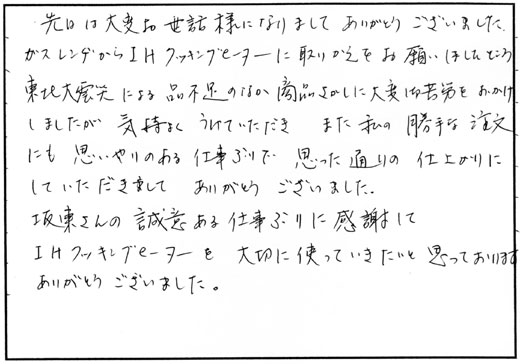 先日は大変お世話様になりまして ありがとうございました.
ガスレンヂからIHクッキングヒーターに取りかえをお願いしましたところ
東北大震災による品不足のなか商品さがしに大変御苦労をおかけ
しましたが 気持よくうけていただき また私の勝手な注文
にも思いやりのある仕事ぶりで 思った通りの仕上がりに
していただきまして ありがとうございました.
坂東さんの誠意ある仕事ぶりに感謝して
IHクッキングヒーターを 大切に使っていきたいと思っております
ありがとうございました。